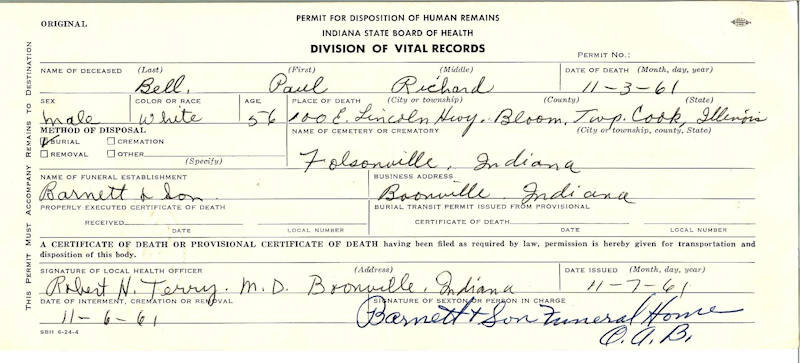 ORIGINAL
PERMIT FOR DISPOSITION OF HUMAN REMAINS
INDIANA STATE BOARD OF HEALTH
DIVISION OF VITAL RECORDS
PERMIT NO.:
THIS PERMIT MUST ACCOMPANY REMAINS TO DESTINATION
NAME OF DECEASED (Last) (First) (Middle) DATE OF DEATH (Month, day, year)
Bell, Paul Richard 11-3-61
SEX COLOR OR RACE AGE PLACE OF DEATH (City or township) (County) (State)
Male White 56 100 E. Lincoln Hwy. Bloom, Twp. Cook, Illinois
METHOD OF DISPOSAL NAME OF CEMETERY OR CREMATORY (City or township, county, State)
BURIAL CREMATION
REMOVAL OTHER (Specify)
Folsonville, Indiana
NAME OF FUNERAL ESTABLISHMENT BUSINESS ADDRESS
Barnett & Son. Boonville, Indiana
PROPERLY EXECUTED CERTIFICATE OF DEATH BURIAL TRANSIT PERMIT ISSUED FROM PROVISIONAL
RECEIVED CERTIFICATE OF DEATH
DATE LOCAL NUMBER DATE LOCAL NUMBER
A CERTIFICATE OF DEATH OR PROVISIONAL CERTIFICATE OF DEATH having been filed as required by law, permission is hereby given for transportation and
disposition of this body.
SIGNATURE OF LOCAL HEALTH OFFICER (Address) DATE ISSUED (Month, day, year)
Robert N. Terry. M.D. Boonville, Indiana 11-7-61
DATE OF INTERMENT, CREMATION OR REMOVAL SIGNATURE OF SEXTON OR PERSON IN CHARGE
11-6-61 Barnett & Son Funeral Home
O.A.B.
SBH 6-24-4